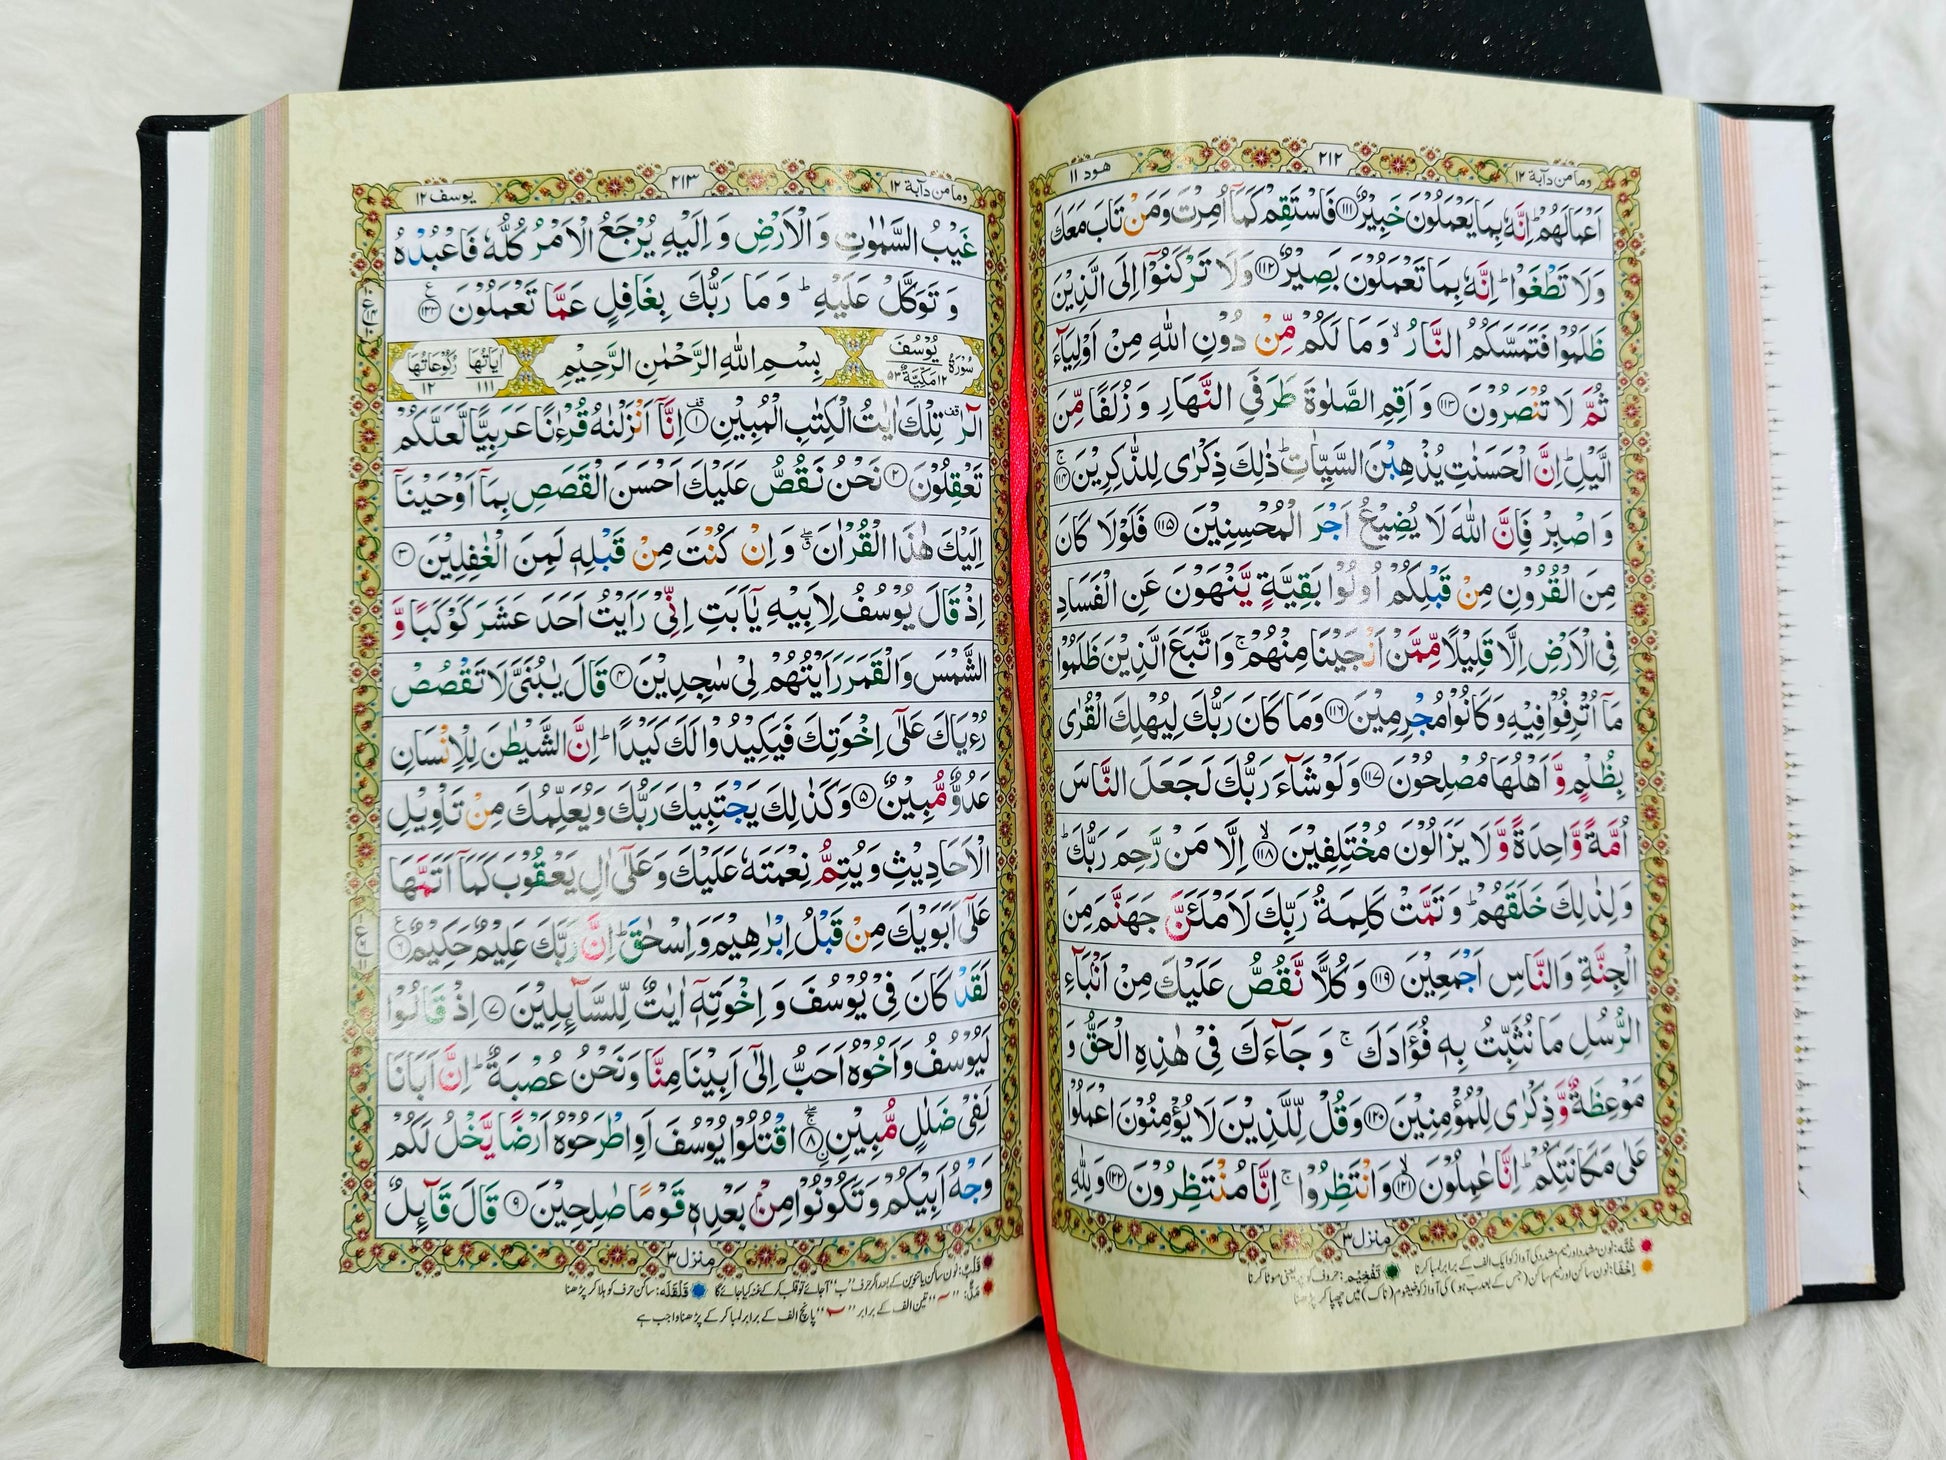 وما من دآبة ۱۲
۲۱۲
هود ۱۱
اَعْمَالَهُمْ ؕ اِنَّهٗ بِمَا یَعْمَلُوْنَ خَبِیْرٌ ۝۱۱۱ فَاسْتَقِمْ كَمَاۤ اُمِرْتَ وَ مَنْ تَابَ مَعَكَ
وَ لَا تَطْغَوْا ؕ اِنَّهٗ بِمَا تَعْمَلُوْنَ بَصِیْرٌ ۝۱۱۲ وَ لَا تَرْكَنُوْۤا اِلَی الَّذِیْنَ
ظَلَمُوْا فَتَمَسَّكُمُ النَّارُ ۙ وَ مَا لَكُمْ مِّنْ دُوْنِ اللّٰهِ مِنْ اَوْلِیَآءَ
ثُمَّ لَا تُنْصَرُوْنَ ۝۱۱۳ وَ اَقِمِ الصَّلٰوةَ طَرَفَیِ النَّهَارِ وَ زُلَفًا مِّنَ
الَّیْلِ ؕ اِنَّ الْحَسَنٰتِ یُذْهِبْنَ السَّیِّاٰتِ ؕ ذٰلِكَ ذِكْرٰی لِلذّٰكِرِیْنَ ۚ۝۱۱۴
وَ اصْبِرْ فَاِنَّ اللّٰهَ لَا یُضِیْعُ اَجْرَ الْمُحْسِنِیْنَ ۝۱۱۵ فَلَوْ لَا كَانَ
مِنَ الْقُرُوْنِ مِنْ قَبْلِكُمْ اُولُوْا بَقِیَّةٍ یَّنْهَوْنَ عَنِ الْفَسَادِ
فِی الْاَرْضِ اِلَّا قَلِیْلًا مِّمَّنْ اَنْجَیْنَا مِنْهُمْ ۚ وَ اتَّبَعَ الَّذِیْنَ ظَلَمُوْا
مَاۤ اُتْرِفُوْا فِیْهِ وَ كَانُوْا مُجْرِمِیْنَ ۝۱۱۶ وَ مَا كَانَ رَبُّكَ لِیُهْلِكَ الْقُرٰی
بِظُلْمٍ وَّ اَهْلُهَا مُصْلِحُوْنَ ۝۱۱۷ وَ لَوْ شَآءَ رَبُّكَ لَجَعَلَ النَّاسَ
اُمَّةً وَّاحِدَةً وَّ لَا یَزَالُوْنَ مُخْتَلِفِیْنَ ۙ۝۱۱۸ اِلَّا مَنْ رَّحِمَ رَبُّكَ ؕ
وَ لِذٰلِكَ خَلَقَهُمْ ؕ وَ تَمَّتْ كَلِمَةُ رَبِّكَ لَاَمْلَـَٔنَّ جَهَنَّمَ مِنَ
الْجِنَّةِ وَ النَّاسِ اَجْمَعِیْنَ ۝۱۱۹ وَ كُلًّا نَّقُصُّ عَلَیْكَ مِنْ اَنْۢبَآءِ
الرُّسُلِ مَا نُثَبِّتُ بِهٖ فُؤَادَكَ ۚ وَ جَآءَكَ فِیْ هٰذِهِ الْحَقُّ وَ
مَوْعِظَةٌ وَّ ذِكْرٰی لِلْمُؤْمِنِیْنَ ۝۱۲۰ وَ قُلْ لِّلَّذِیْنَ لَا یُؤْمِنُوْنَ اعْمَلُوْا
عَلٰی مَكَانَتِكُمْ ؕ اِنَّا عٰمِلُوْنَ ۙ۝۱۲۱ وَ انْتَظِرُوْا ۚ اِنَّا مُنْتَظِرُوْنَ ۝۱۲۲ وَ لِلّٰهِ
منزل ۳
غُنَّه: نون مشدد اور میم مشدد کی آواز کو ایک الف کے برابر لمبا کرنا تَفْخِیْم: حروف کو پُر یعنی موٹا کرنا
اِخْفَا: نون ساکن اور میم ساکن (جس کے بعد ب ہو) کی آواز کو خیشوم (ناک) میں چھپا کر پڑھنا
وما من دآبة ۱۲
۲۱۳
یوسف ۱۲
غَیْبُ السَّمٰوٰتِ وَ الْاَرْضِ وَ اِلَیْهِ یُرْجَعُ الْاَمْرُ كُلُّهٗ فَاعْبُدْهُ
وَ تَوَكَّلْ عَلَیْهِ ؕ وَ مَا رَبُّكَ بِغَافِلٍ عَمَّا تَعْمَلُوْنَ ۝۱۲۳
سُوْرَةُ یُوْسُفَ ۱۲ مَكِّیَّةٌ ۵۳ بِسْمِ اللّٰهِ الرَّحْمٰنِ الرَّحِیْمِ اٰیَاتُهَا ۱۱۱ رُكُوْعَاتُهَا ۱۲
الٓرٰ ۫ تِلْكَ اٰیٰتُ الْكِتٰبِ الْمُبِیْنِ ۝۱ اِنَّاۤ اَنْزَلْنٰهُ قُرْءٰنًا عَرَبِیًّا لَّعَلَّكُمْ
تَعْقِلُوْنَ ۝۲ نَحْنُ نَقُصُّ عَلَیْكَ اَحْسَنَ الْقَصَصِ بِمَاۤ اَوْحَیْنَاۤ
اِلَیْكَ هٰذَا الْقُرْاٰنَ ۖۗ وَ اِنْ كُنْتَ مِنْ قَبْلِهٖ لَمِنَ الْغٰفِلِیْنَ ۝۳
اِذْ قَالَ یُوْسُفُ لِاَبِیْهِ یٰۤاَبَتِ اِنِّیْ رَاَیْتُ اَحَدَ عَشَرَ كَوْكَبًا وَّ
الشَّمْسَ وَ الْقَمَرَ رَاَیْتُهُمْ لِیْ سٰجِدِیْنَ ۝۴ قَالَ یٰبُنَیَّ لَا تَقْصُصْ
رُءْیَاكَ عَلٰۤی اِخْوَتِكَ فَیَكِیْدُوْا لَكَ كَیْدًا ؕ اِنَّ الشَّیْطٰنَ لِلْاِنْسَانِ
عَدُوٌّ مُّبِیْنٌ ۝۵ وَ كَذٰلِكَ یَجْتَبِیْكَ رَبُّكَ وَ یُعَلِّمُكَ مِنْ تَاْوِیْلِ
الْاَحَادِیْثِ وَ یُتِمُّ نِعْمَتَهٗ عَلَیْكَ وَ عَلٰۤی اٰلِ یَعْقُوْبَ كَمَاۤ اَتَمَّهَا
عَلٰۤی اَبَوَیْكَ مِنْ قَبْلُ اِبْرٰهِیْمَ وَ اِسْحٰقَ ؕ اِنَّ رَبَّكَ عَلِیْمٌ حَكِیْمٌ ۝۶
لَقَدْ كَانَ فِیْ یُوْسُفَ وَ اِخْوَتِهٖۤ اٰیٰتٌ لِّلسَّآىِٕلِیْنَ ۝۷ اِذْ قَالُوْا
لَیُوْسُفُ وَ اَخُوْهُ اَحَبُّ اِلٰۤی اَبِیْنَا مِنَّا وَ نَحْنُ عُصْبَةٌ ؕ اِنَّ اَبَانَا
لَفِیْ ضَلٰلٍ مُّبِیْنِ ۝۸ اقْتُلُوْا یُوْسُفَ اَوِ اطْرَحُوْهُ اَرْضًا یَّخْلُ لَكُمْ
وَجْهُ اَبِیْكُمْ وَ تَكُوْنُوْا مِنْۢ بَعْدِهٖ قَوْمًا صٰلِحِیْنَ ۝۹ قَالَ قَآىِٕلٌ
منزل ۳
قَلْب: نون ساکن یا تنوین کے بعد اگر حرف "ب" آجائے تو قلب کر کے غنہ کیا جائے گا قَلْقَلَه: ساکن حرف کو ہلا کر پڑھنا
مَدّ: تین الف کے برابر پانچ الف کے برابر لمبا کر کے پڑھنا واجب ہے